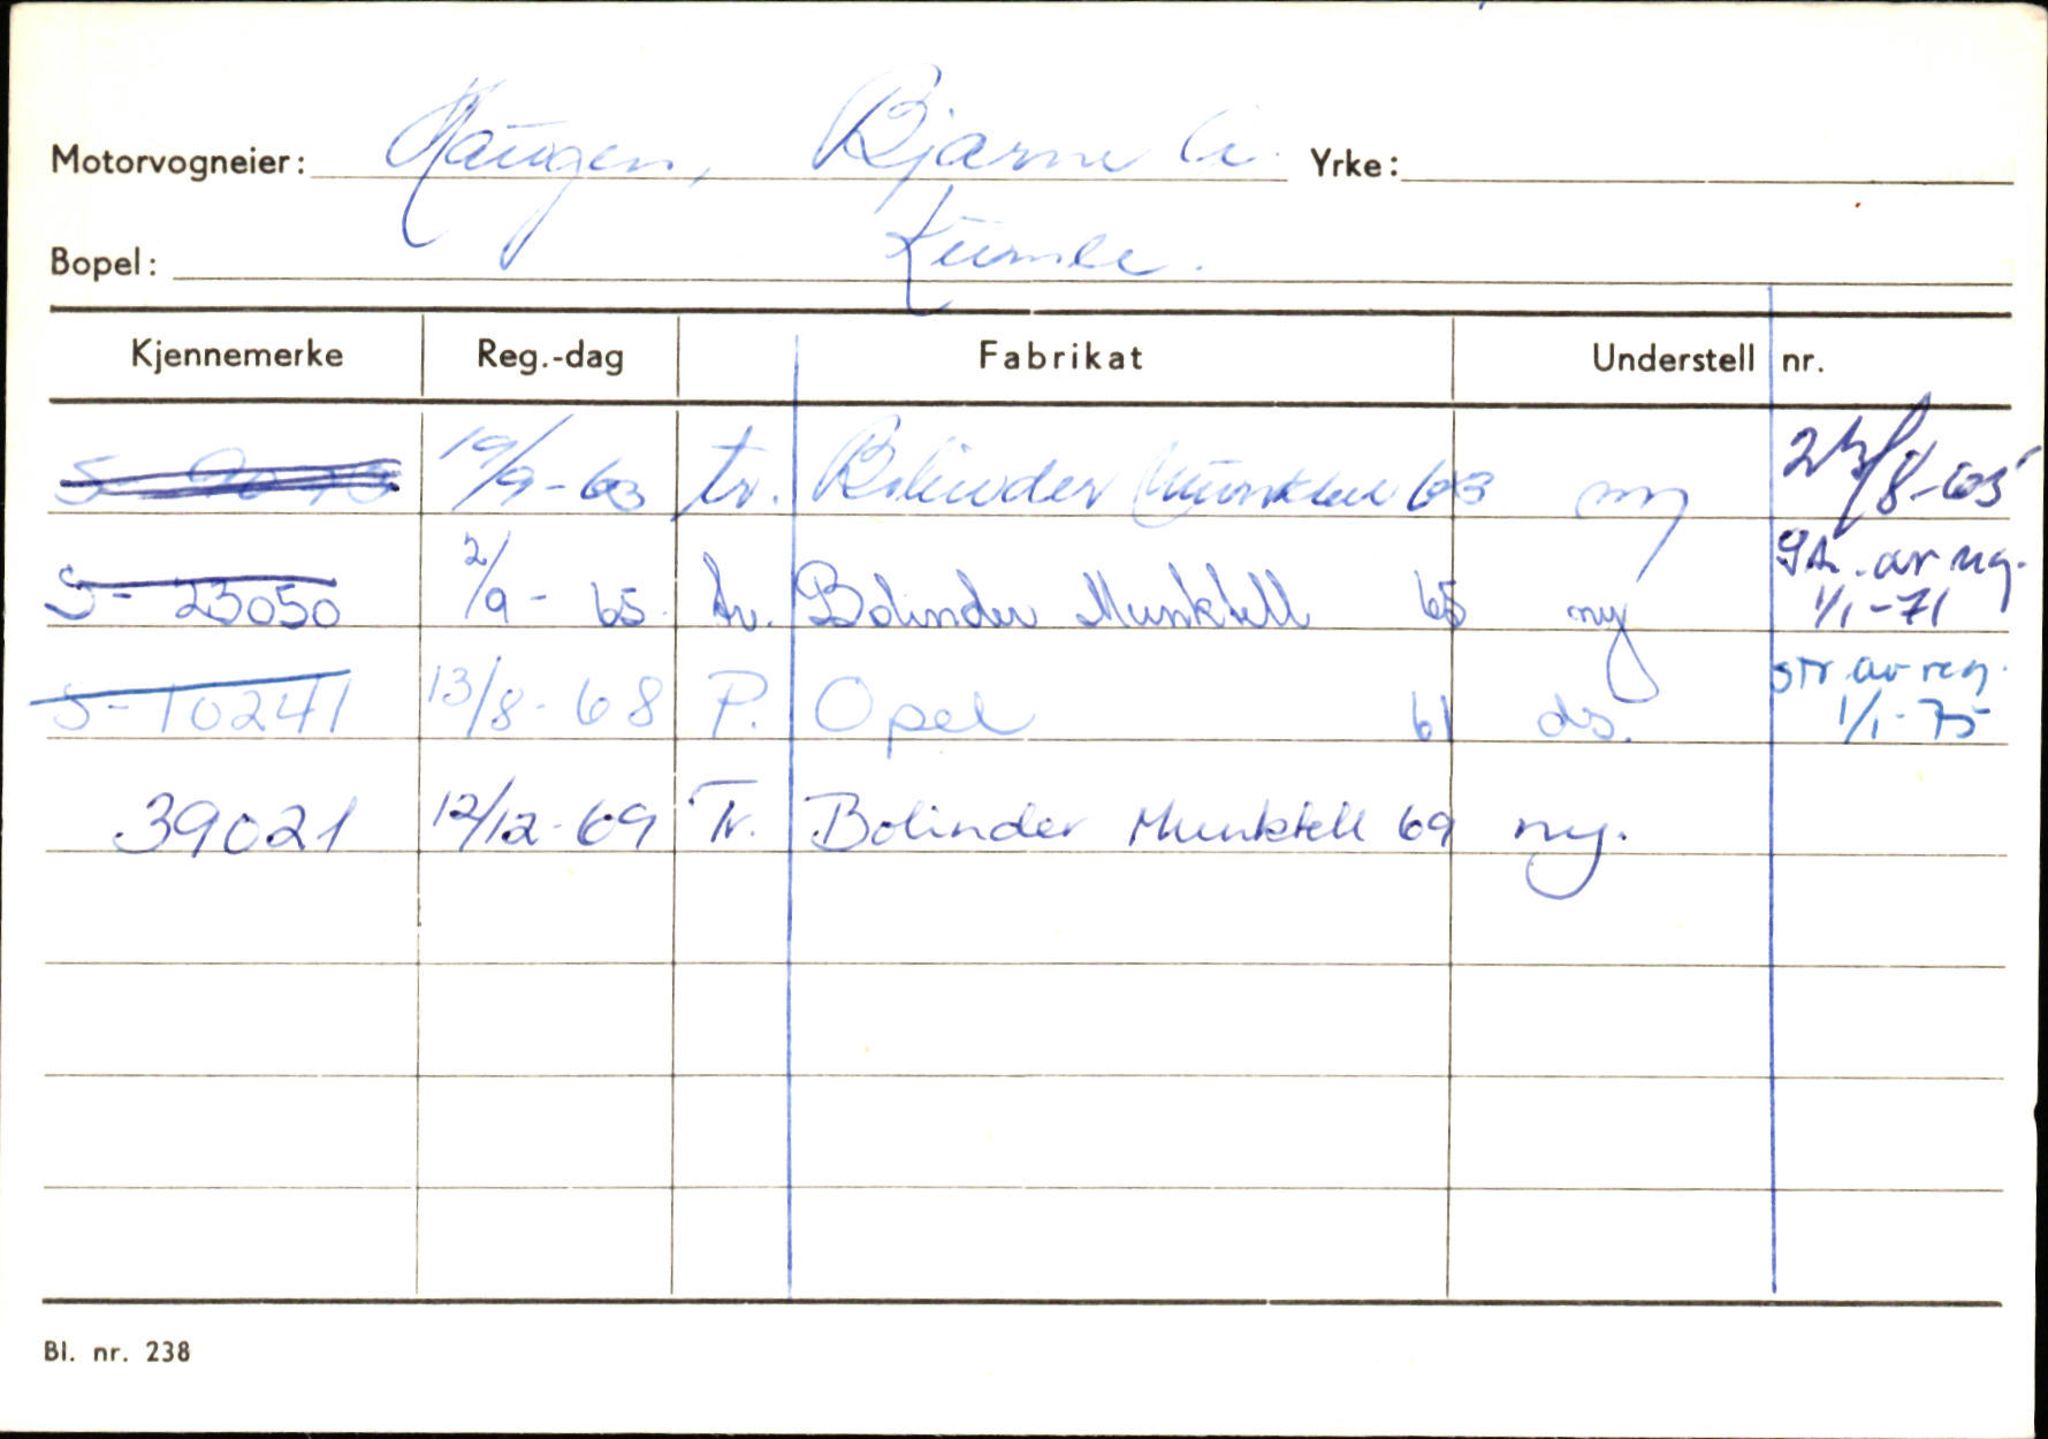 Motorvogneier: Haugen, Bjarne A. Yrke:
Bopel: Kumle.
Kjennemerke Reg.-dag Fabrikat Understell nr.
S- 19/9-63 tr. Bolinder Munktell 63 ny 23/8-65
S- 23050 2/9-65 tr. Bolinder Munktell 65 ny str. av reg. 1/1-71
S-10241 13/8-68 P. Opel 61 ds. str av reg. 1/1-75
39021 12/12-69 Tr. Bolinder Munktell 69 ny.
Bl. nr. 238